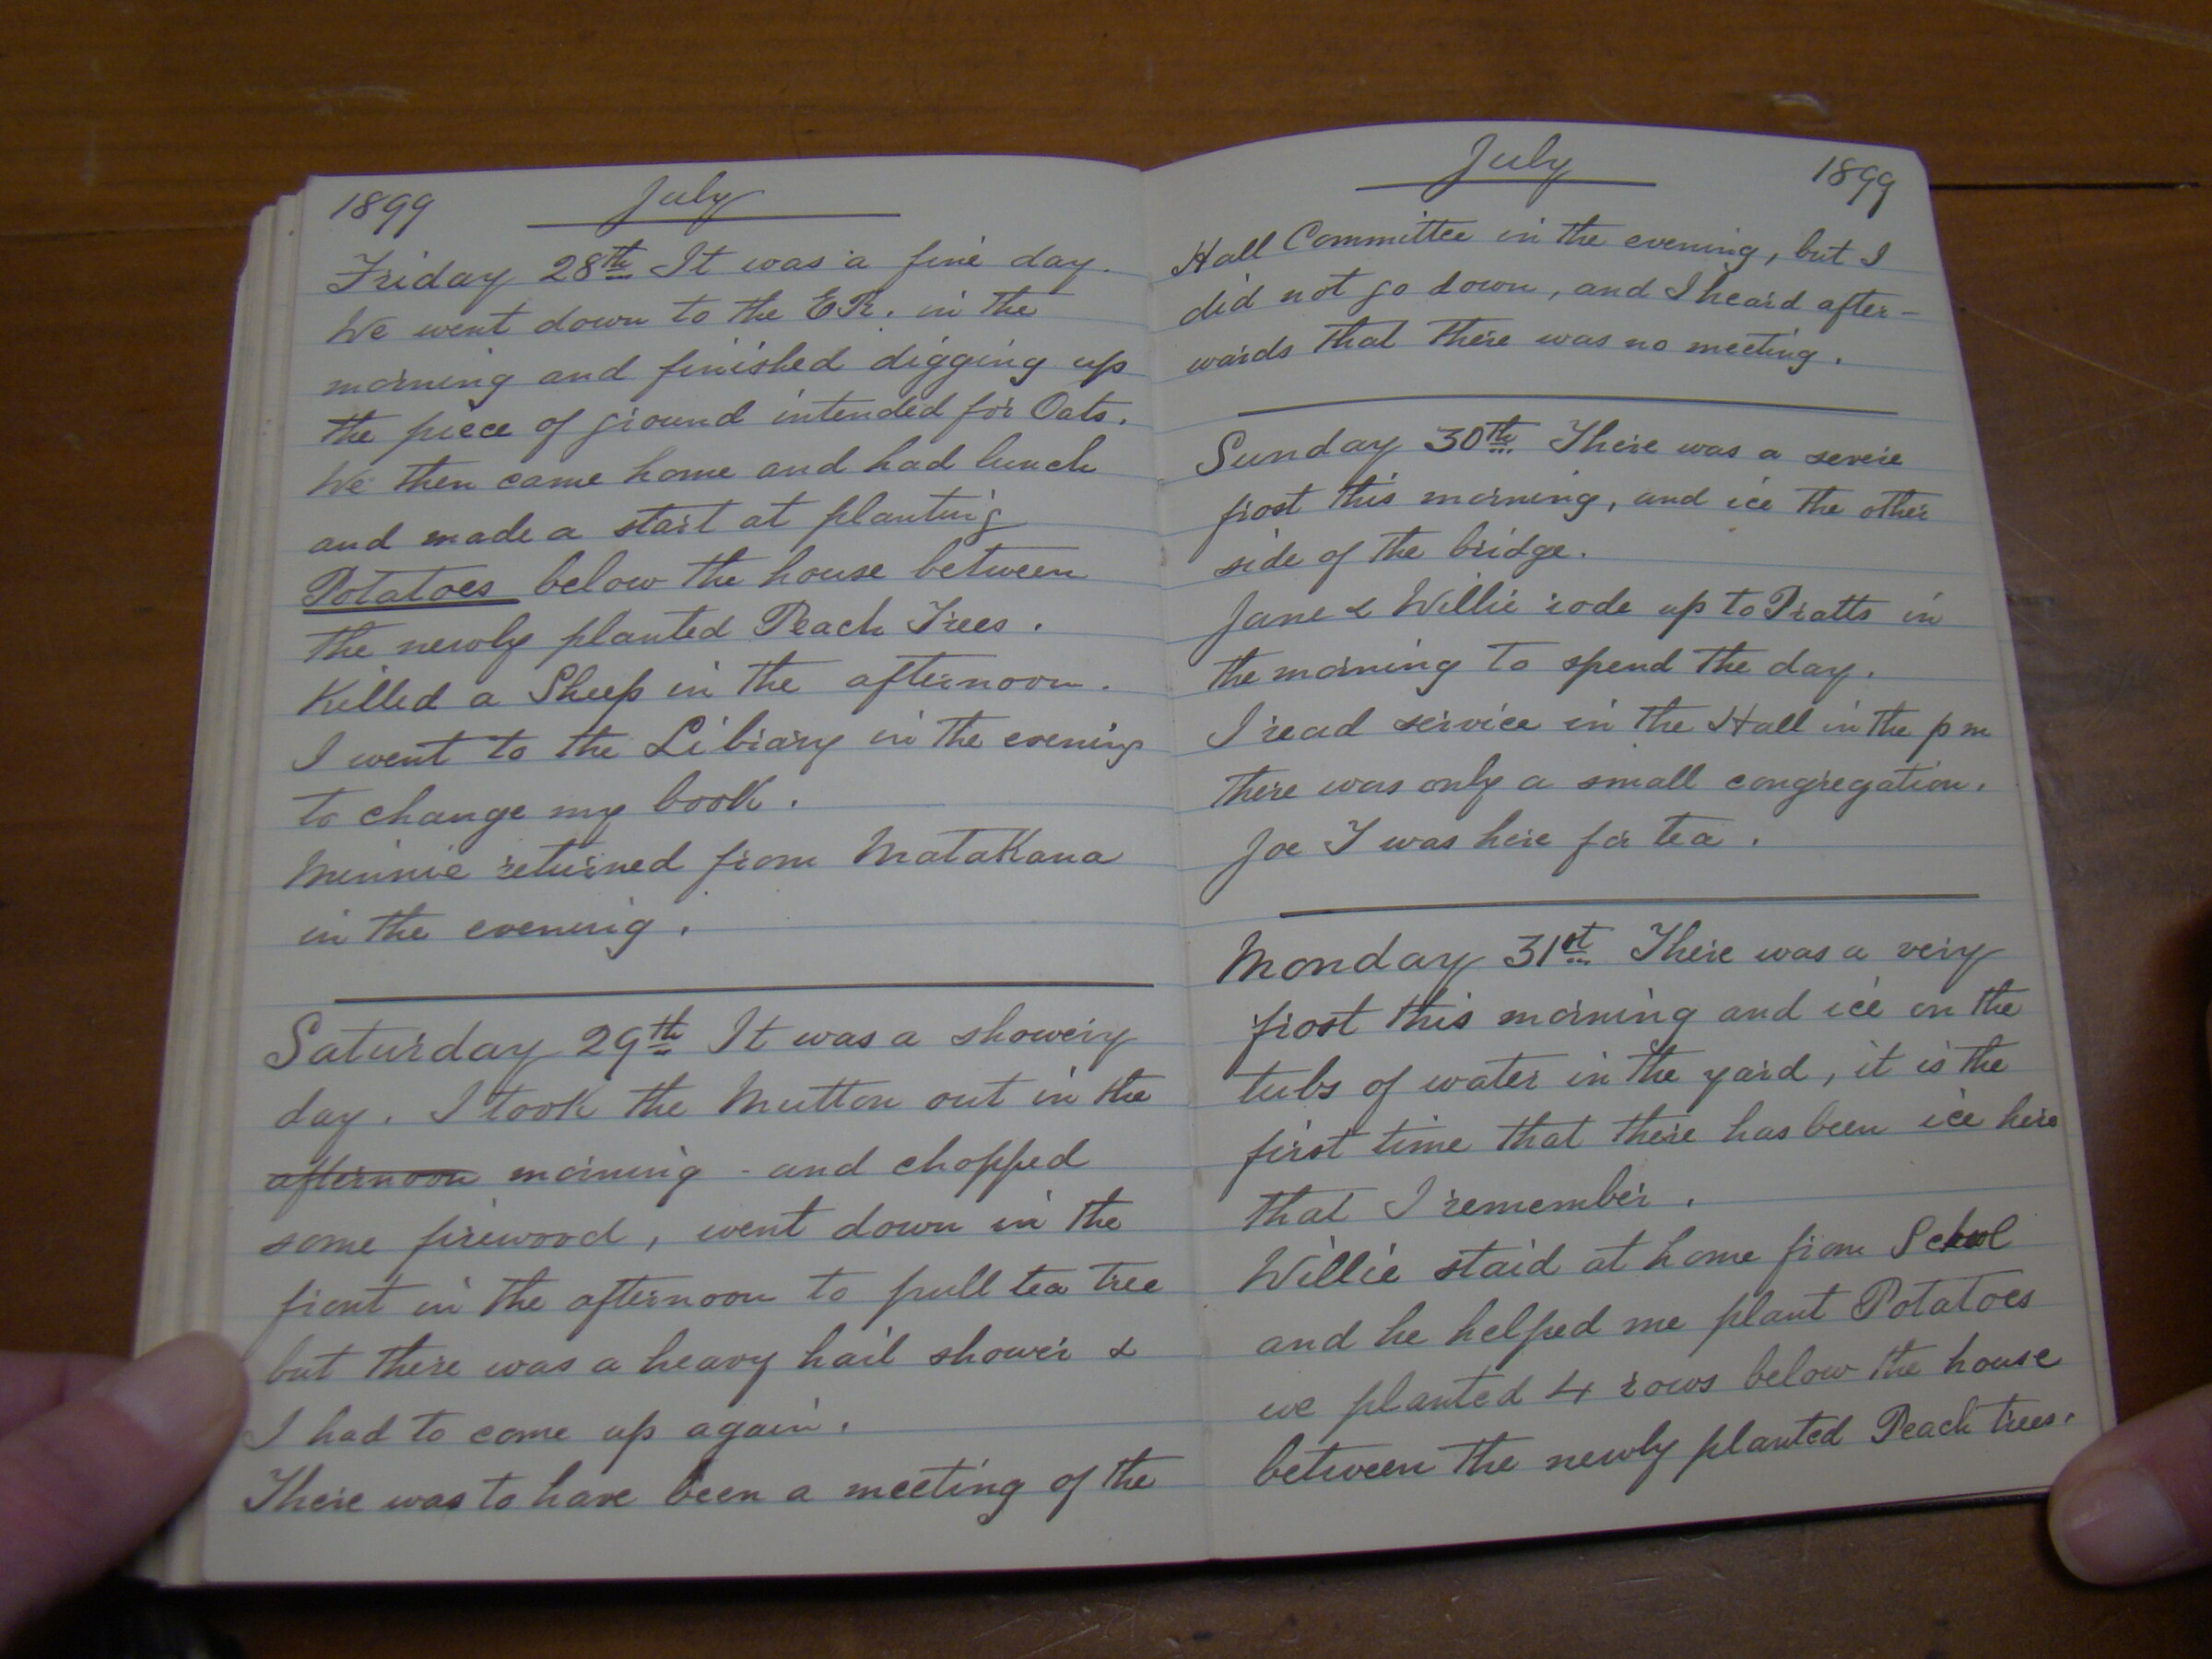 1899 July
Friday 28th It was a fine day.
We went down to the ER. in the
morning and finished digging up
the piece of ground intended for Oats.
We then came home and had lunch
and made a start at planting
Potatoes below the house between
the newly planted Peach Trees.
Killed a Sheep in the afternoon.
I went to the Library in the evening
to change my book.
Minnie returned from Matakana
in the evening.
Saturday 29th It was a showery
day. I took the Mutton out in the
afternoon morning - and chopped
some firewood, went down in the
front in the afternoon to pull tea tree
but there was a heavy hail shower &
I had to come up again.
There was to have been a meeting of the
July 1899
Hall Committee in the evening, but I
did not go down, and I heard after-
wards that there was no meeting.
Sunday 30th There was a severe
frost this morning, and ice the other
side of the bridge.
Jane & Willie rode up to Pratts in
the morning to spend the day.
I read service in the Hall in the pm
there was only a small congregation.
Joe T was here for tea.
Monday 31st There was a very
frost this morning and ice on the
tubs of water in the yard, it is the
first time that there has been ice here
that I remember.
Willie staid at home from School
and he helped me plant Potatoes
we planted 4 rows below the house
between the newly planted Peach trees.